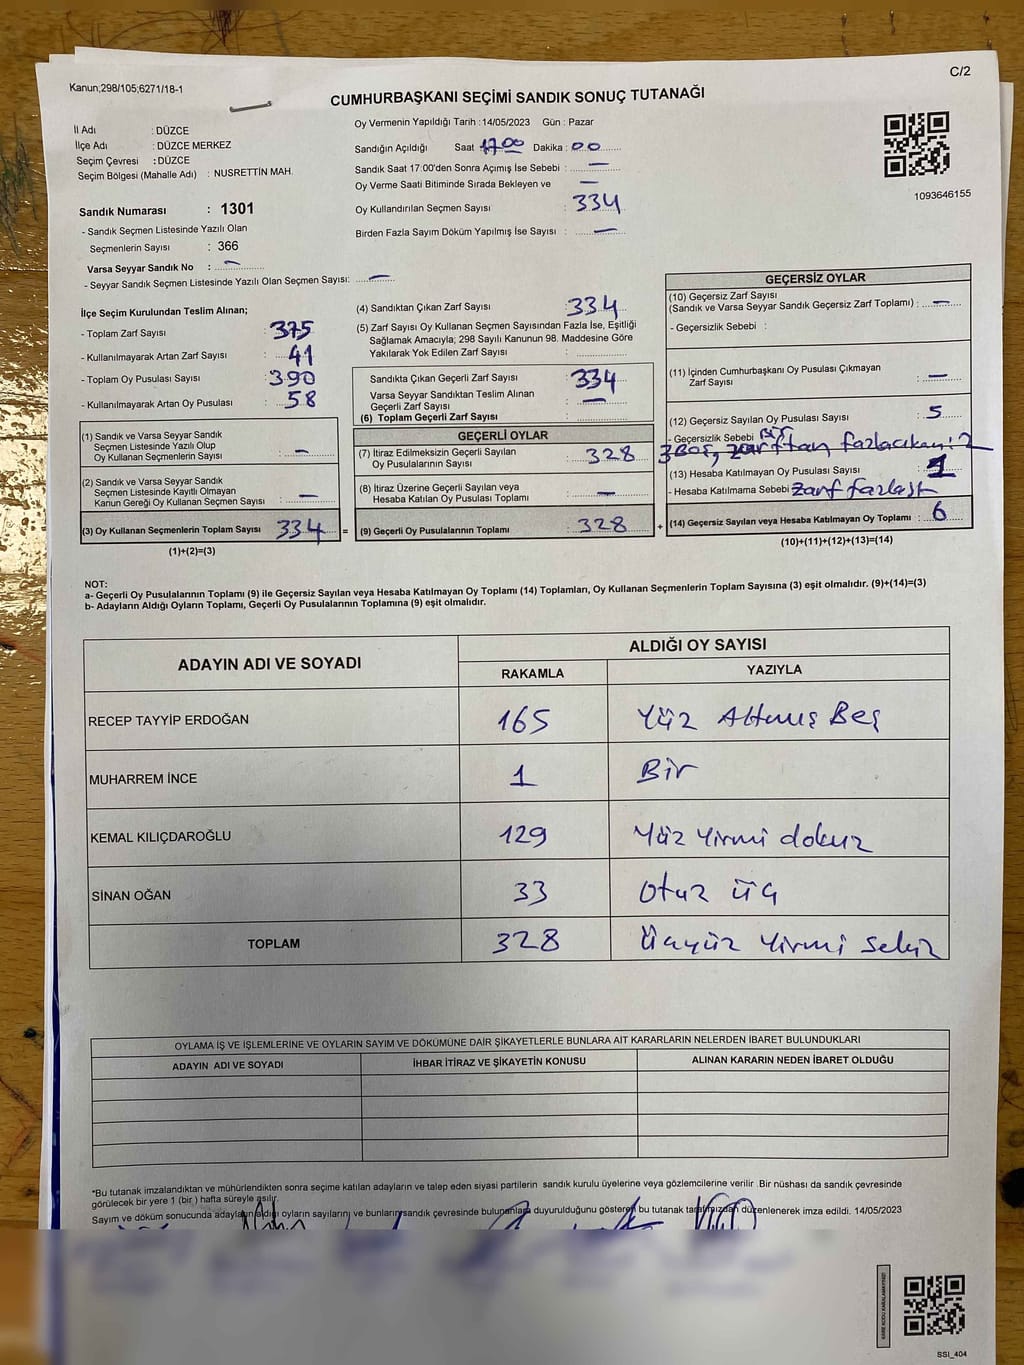 C/2
Kanun;298/105;6271/18-1
CUMHURBAŞKANI SEÇİMİ SANDIK SONUÇ TUTANAĞI
İl Adı : DÜZCE
İlçe Adı : DÜZCE MERKEZ
Seçim Çevresi : DÜZCE
Seçim Bölgesi (Mahalle Adı) : NUSRETTİN MAH.
Sandık Numarası : 1301
- Sandık Seçmen Listesinde Yazılı Olan
Seçmenlerin Sayısı : 366
Varsa Seyyar Sandık No : —
- Seyyar Sandık Seçmen Listesinde Yazılı Olan Seçmen Sayısı: —
Oy Vermenin Yapıldığı Tarih : 14/05/2023 Gün : Pazar
Sandığın Açıldığı Saat 17:00 Dakika : 00
Sandık Saat 17:00'den Sonra Açımış İse Sebebi : —
Oy Verme Saati Bitiminde Sırada Bekleyen ve —
Oy Kullandırılan Seçmen Sayısı : 334
Birden Fazla Sayım Döküm Yapılmış İse Sayısı : —
1093646155
İlçe Seçim Kurulundan Teslim Alınan;
- Toplam Zarf Sayısı : 375
- Kullanılmayarak Artan Zarf Sayısı : 41
- Toplam Oy Pusulası Sayısı : 390
- Kullanılmayarak Artan Oy Pusulası : 58
(1) Sandık ve Varsa Seyyar Sandık
Seçmen Listesinde Yazılı Olup
Oy Kullanan Seçmenlerin Sayısı : —
(2) Sandık ve Varsa Seyyar Sandık
Seçmen Listesinde Kayıtlı Olmayan
Kanun Gereği Oy Kullanan Seçmen Sayısı : —
(3) Oy Kullanan Seçmenlerin Toplam Sayısı 334 =
(1)+(2)=(3)
(4) Sandıktan Çıkan Zarf Sayısı : 334
(5) Zarf Sayısı Oy Kullanan Seçmen Sayısından Fazla İse, Eşitliği
Sağlamak Amacıyla; 298 Sayılı Kanunun 98. Maddesine Göre
Yakılarak Yok Edilen Zarf Sayısı :
Sandıkta Çıkan Geçerli Zarf Sayısı : 334
Varsa Seyyar Sandıktan Teslim Alınan
Geçerli Zarf Sayısı : —
(6) Toplam Geçerli Zarf Sayısı :
GEÇERLİ OYLAR
(7) İtiraz Edilmeksizin Geçerli Sayılan
Oy Pusulalarının Sayısı : 328
(8) İtiraz Üzerine Geçerli Sayılan veya
Hesaba Katılan Oy Pusulası Toplamı : —
(9) Geçerli Oy Pusulalarının Toplamı : 328 +
GEÇERSİZ OYLAR
(10) Geçersiz Zarf Sayısı
(Sandık ve Varsa Seyyar Sandık Geçersiz Zarf Toplamı) : —
- Geçersizlik Sebebi :
(11) İçinden Cumhurbaşkanı Oy Pusulası Çıkmayan
Zarf Sayısı : —
(12) Geçersiz Sayılan Oy Pusulası Sayısı : 5
- Geçersizlik Sebebi Bir
3 Boş, zarftan fazla çıkan: 2
(13) Hesaba Katılmayan Oy Pusulası Sayısı : 1
- Hesaba Katılmama Sebebi
(14) Geçersiz Sayılan veya Hesaba Katılmayan Oy Toplamı : 6
(10)+(11)+(12)+(13)=(14)
NOT:
a- Geçerli Oy Pusulalarının Toplamı (9) ile Geçersiz Sayılan veya Hesaba Katılmayan Oy Toplamı (14) Toplamları, Oy Kullanan Seçmenlerin Toplam Sayısına (3) eşit olmalıdır. (9)+(14)=(3)
b- Adayların Aldığı Oyların Toplamı, Geçerli Oy Pusulalarının Toplamına (9) eşit olmalıdır.
ADAYIN ADI VE SOYADI ALDIĞI OY SAYISI
RAKAMLA YAZIYLA
RECEP TAYYİP ERDOĞAN 165 Yüz Altmış Beş
MUHARREM İNCE 1 Bir
KEMAL KILIÇDAROĞLU 129 Yüz Yirmi dokuz
SİNAN OĞAN 33 Otuz üç
TOPLAM 328 Üçyüz Yirmi Sekiz
OYLAMA İŞ VE İŞLEMLERİNE VE OYLARIN SAYIM VE DÖKÜMÜNE DAİR ŞİKAYETLERLE BUNLARA AİT KARARLARIN NELERDEN İBARET BULUNDUKLARI
ADAYIN ADI VE SOYADI İHBAR İTİRAZ VE ŞİKAYETİN KONUSU ALINAN KARARIN NEDEN İBARET OLDUĞU
*Bu tutanak imzalandıktan ve mühürlendikten sonra seçime katılan adayların ve talep eden siyasi partilerin sandık kurulu üyelerine veya gözlemcilerine verilir .Bir nüshası da sandık çevresinde
görülecek bir yere 1 (bir ) hafta süreyle asılır.
Sayım ve döküm sonucunda adayların aldığı oyların sayılarını ve bunların sandık çevresinde bulunanlara duyurulduğunu gösteren bu tutanak tarafımızdan düzenlenerek imza edildi. 14/05/2023
SSI_404